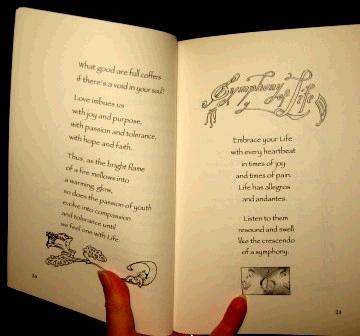 What good are full coffers
if there's a void in your soul?
Love imbues us
with joy and purpose,
with passion and tolerance,
with hope and faith.
Thus, as the bright flame
of a fire mellows into
a warming glow,
so does the passion of youth
evolve into compassion
and tolerance until
we feel one with Life.
Symphony of Life
Embrace your Life
with every heartbeat
in times of joy
and times of pain.
Life has allegros
and andantes.
Listen to them
resound and swell
like the crescendo
of a symphony.